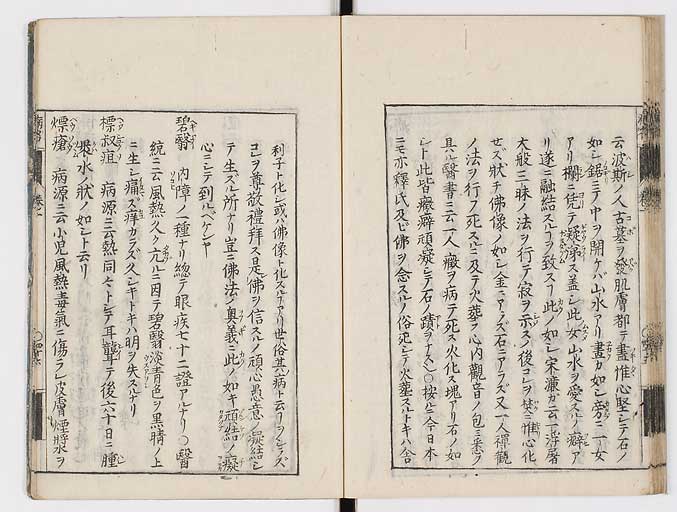 云波斯ノ人古墓ヲ發肌膚都テ盡惟心堅シテ石ノ
如シ鋸ニテ中ヲ開ケバ山水アリ畫カ如シ旁ニ一女
アリ欄ニ凭テ凝渟ス蓋シ此女山水ヲ愛スルノ癖ア
リ遂ニ融結スルヲ致スヿ此ノ如シ宋濂ガ云一浮屠
大般三昧ノ法ヲ行テ寂ヲ示スノ後コレヲ焚ニ惟心化
セズ狀チ佛像ノ如シ金ニアラズ石ニアラズ又一人禪觀
ノ法ヲ行ノ死スルニ及テ火葬ヲ心内觀音ノ包ニ悉ヲ
具ル醫書ニ云一人癥ヲ病テ死ス火化ス塊アリ石ノ如
シト此皆癥癖頑凝シテ石ノ蹟ヲナス〇按ルニ今日本
ニモ亦釋氏及ビ佛ヲ念スルノ俗死シテ火葬スルトキハ舎
利子ト化シ或ハ佛像ト化スルアリ世俗其病ト云フヿヲシラズ
コレヲ尊敬禮拜ス是佛ヲ信スルノ頑心愚意ノ凝結シ
テ生ズル所ナリ豈ニ佛法ノ奥義ニ此ノ如キ頑結ノ癡
心ニシテ到ルベケンヤ
碧翳 内障ノ一種ナリ總テ眼疾七十二證アルナリ〇醫
統ニ云風熱久ク亢ルニ因テ碧翳淡青色ヲ黒睛ノ上
ニ生シ痛ズ痒カラズ久シキトキハ明ヲ失スルナリ
標叔疽 病源ニ云熱同 トシテ耳聾シテ後六十日ニ腫
水ノ狀ノ如シト云リ
熛瘡 病源ニ云小児風熱毒氣ニ傷ラレ皮膚煙漿ヲ